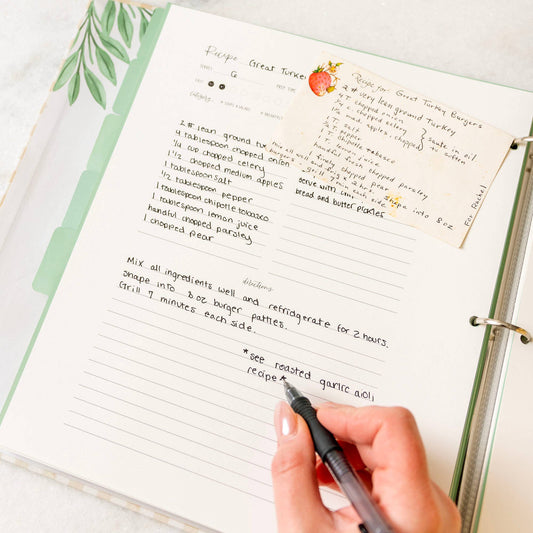 Recipe Great Turkey
SERVES 6 PREP TIME
2 # lean ground
4 tablespoon chopped onion
1/4 cup chopped celery
1 1/2 chopped medium apples
1 tablespoon salt
1/2 tablespoon pepper
1 tablespoon chipotle tobasco
1 tablespoon lemon juice
handful chopped parsley
1 chopped pear
serve with
bread and butter pickles
directions
Mix all ingredients well and refridgerate for 2 hours.
shape into 8 oz burger patties.
Grill 7 minutes each side.
*see roasted garlic aioli
recipe*
Recipe for: Great Turkey Burgers
2 # very lean ground Turkey
4 T. chopped onion
chopped celery
med. apples, chopped
saute in oil
to soften
1 T. salt
T. pepper
1 T. chipotle tabasco
1 T. lemon juice
handful fresh chopped parsley
1 finely chopped pear
shape into 8 oz
min each side
For Rachel